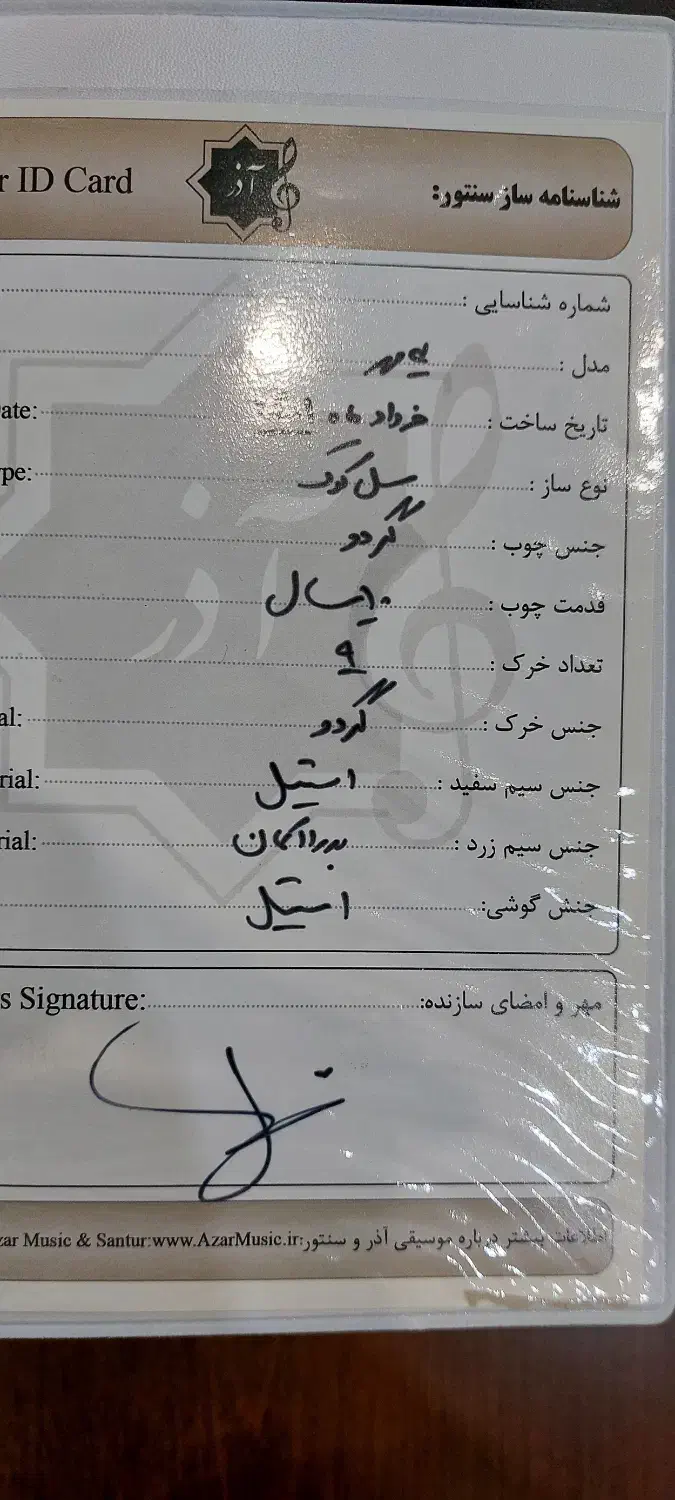 شناسنامه ساز سنتور: r ID Card
آذر
شماره شناسایی :
مدل :
تاریخ ساخت : خرداد ate:
نوع ساز : سل کوک pe:
جنس چوب : گردو
قدمت چوب : سال
تعداد خرک : ۹
جنس خرک : گردو al:
جنس سیم سفید : استیل rial:
جنس سیم زرد : rial:
جنش گوشی: استیل
مهر و امضای سازنده: s Signature:
اطلاعات بیشتر درباره موسیقی آذر و سنتور: zar Music & Santur:www.AzarMusic.ir